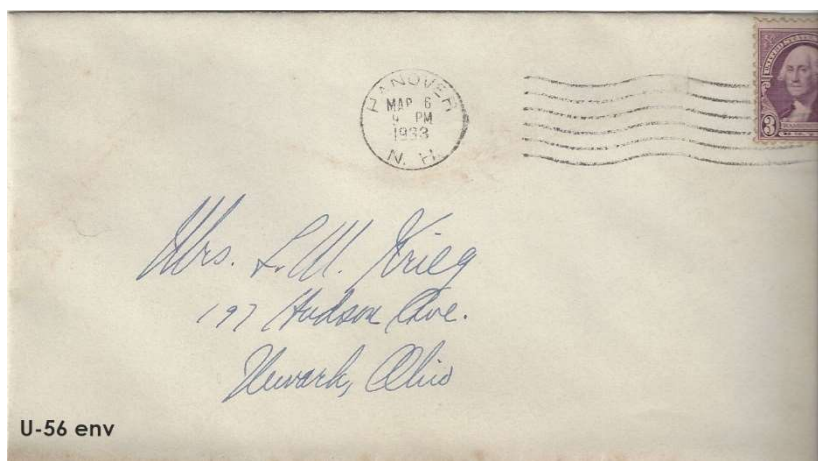 HANOVER
MAR 6
9 PM
1933
N. H.
UNITED STATES
3
Mrs. L. M. Krieg
197 Hudson Ave.
Newark, Ohio
U-56 env